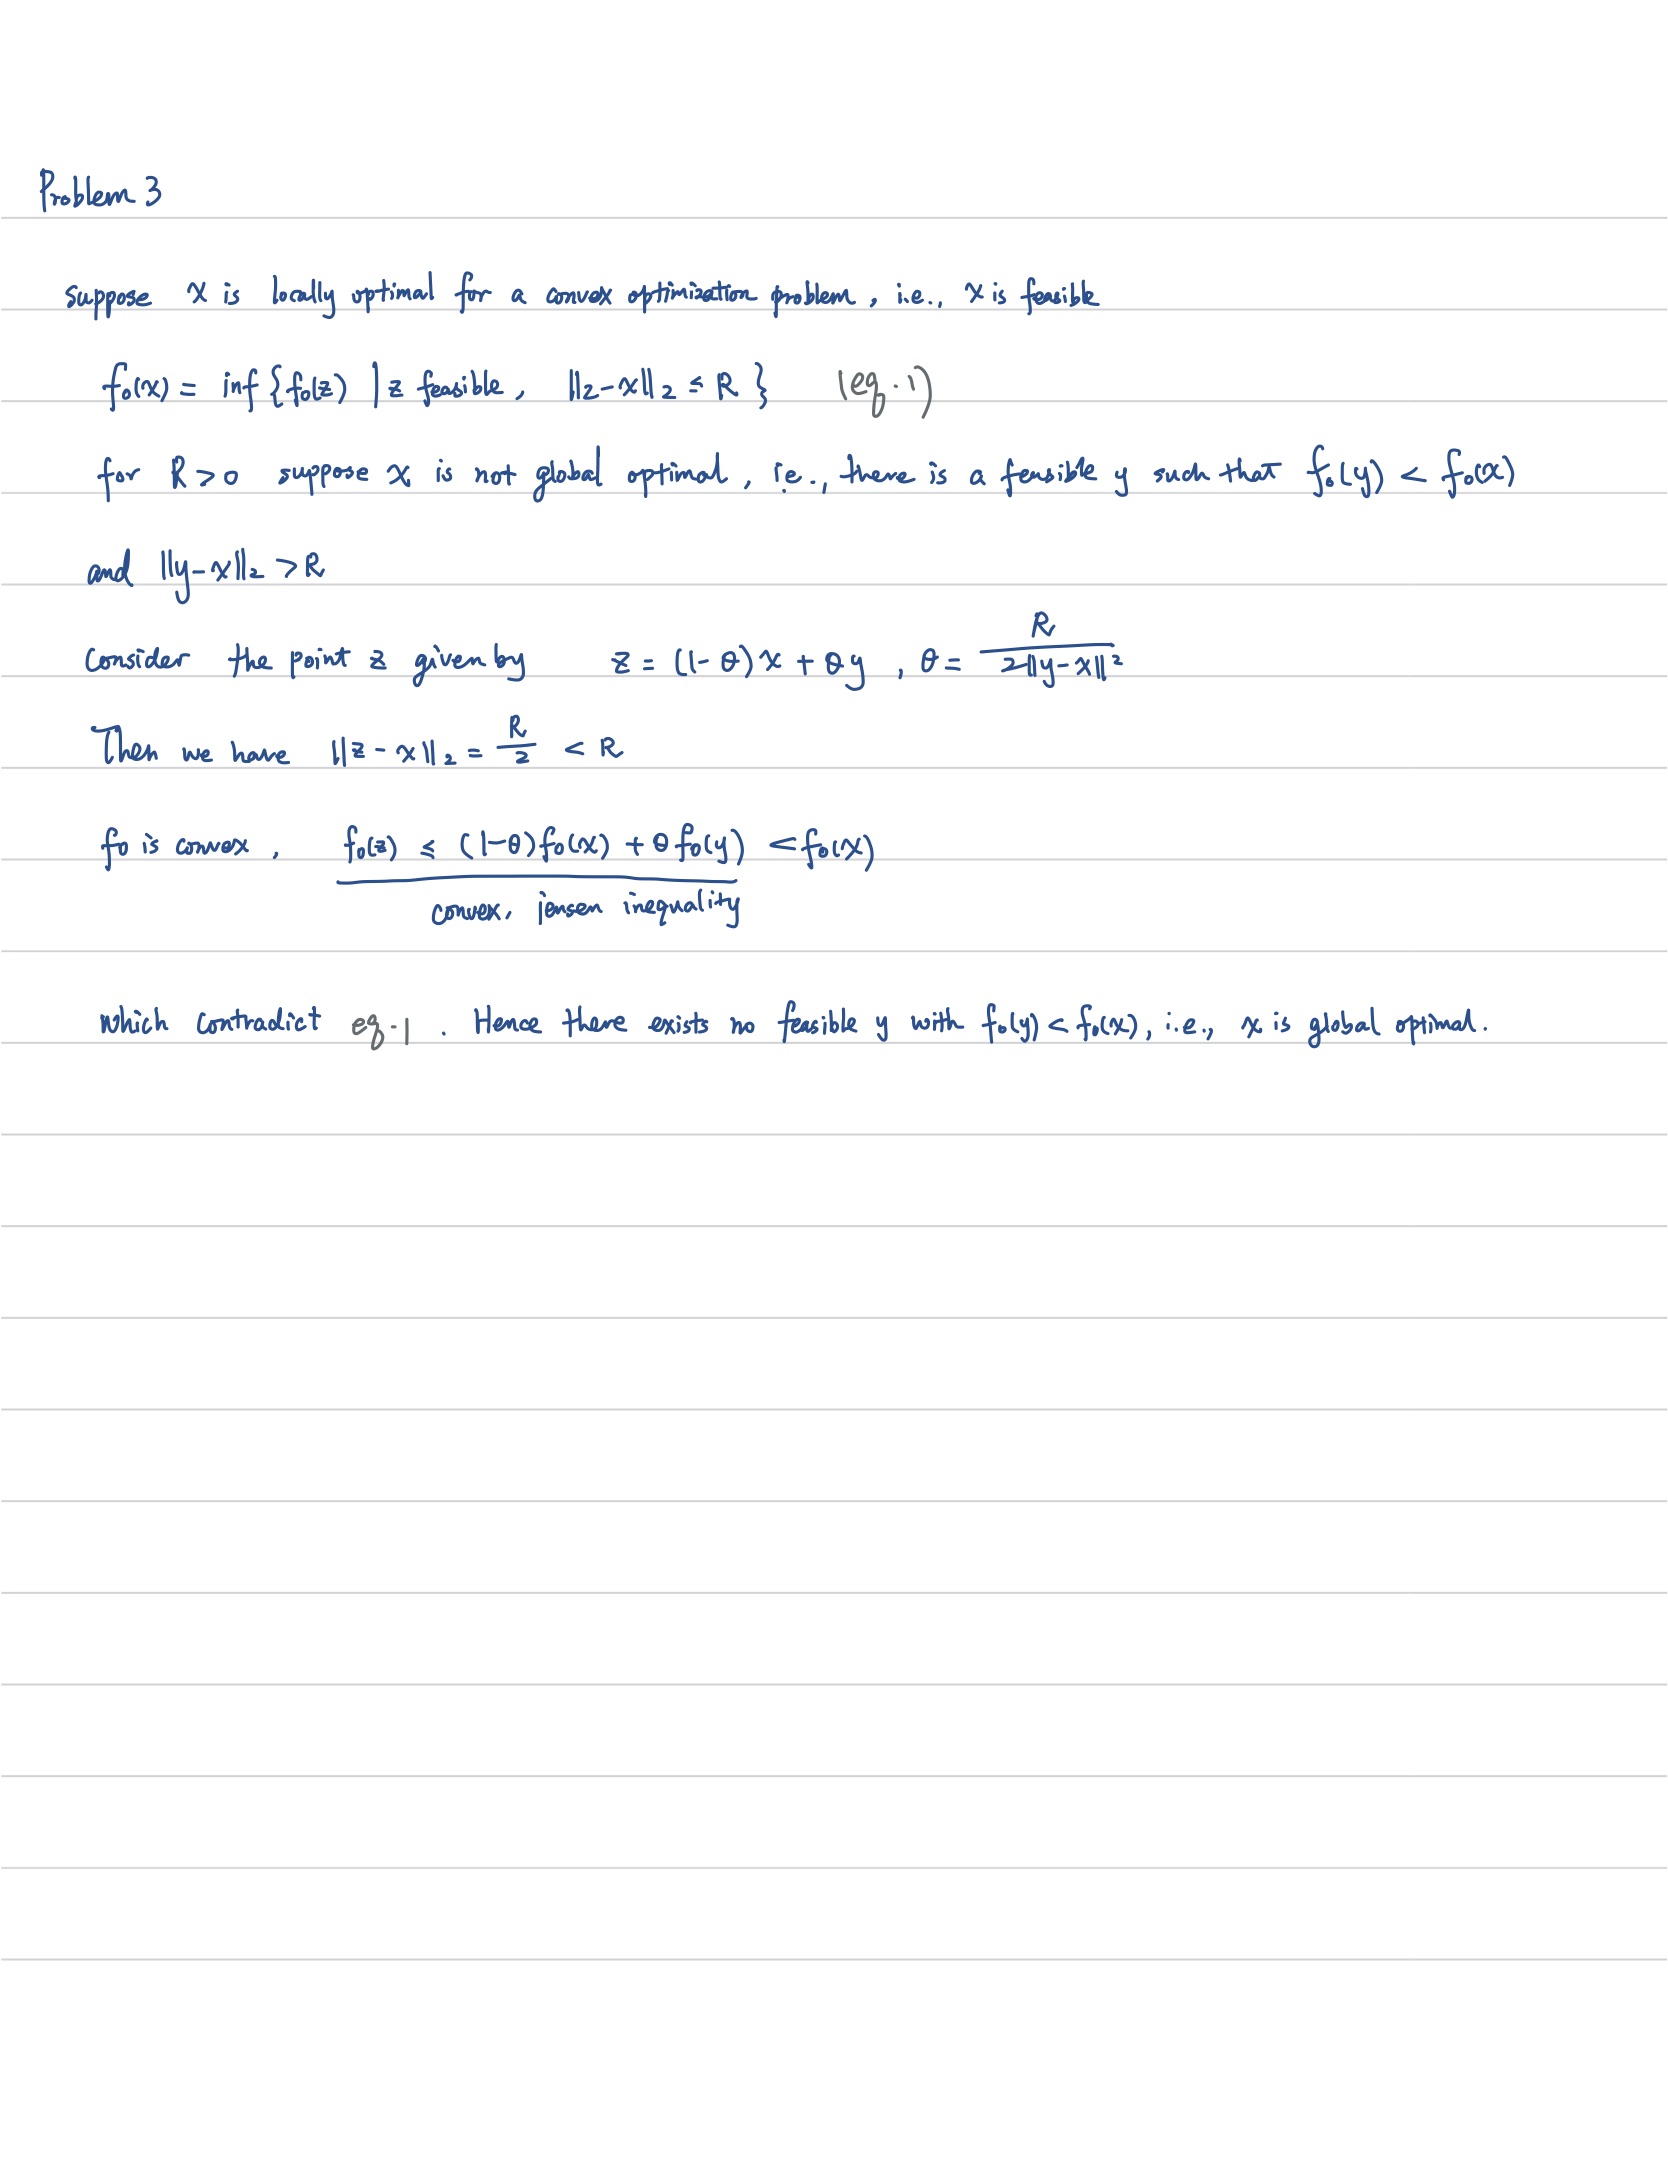 Problem 3
suppose x is locally optimal for a convex optimization problem, i.e., x is feasible
f₀(x) = inf {f₀(z) | z feasible, ||z-x||₂ ≤ R } (eq.1)
for R > 0 suppose x is not global optimal, ie., there is a feasible y such that f₀(y) < f₀(x)
and ||y-x||₂ > R
Consider the point z given by z = (1-θ)x + θy , θ = R / 2||y-x||²
Then we have ||z-x||₂ = R/2 < R
f₀ is convex, f₀(z) ≤ (1-θ)f₀(x) + θf₀(y) < f₀(x)
convex, jensen inequality
which contradict eq.1 . Hence there exists no feasible y with f₀(y) < f₀(x), i.e., x is global optimal.